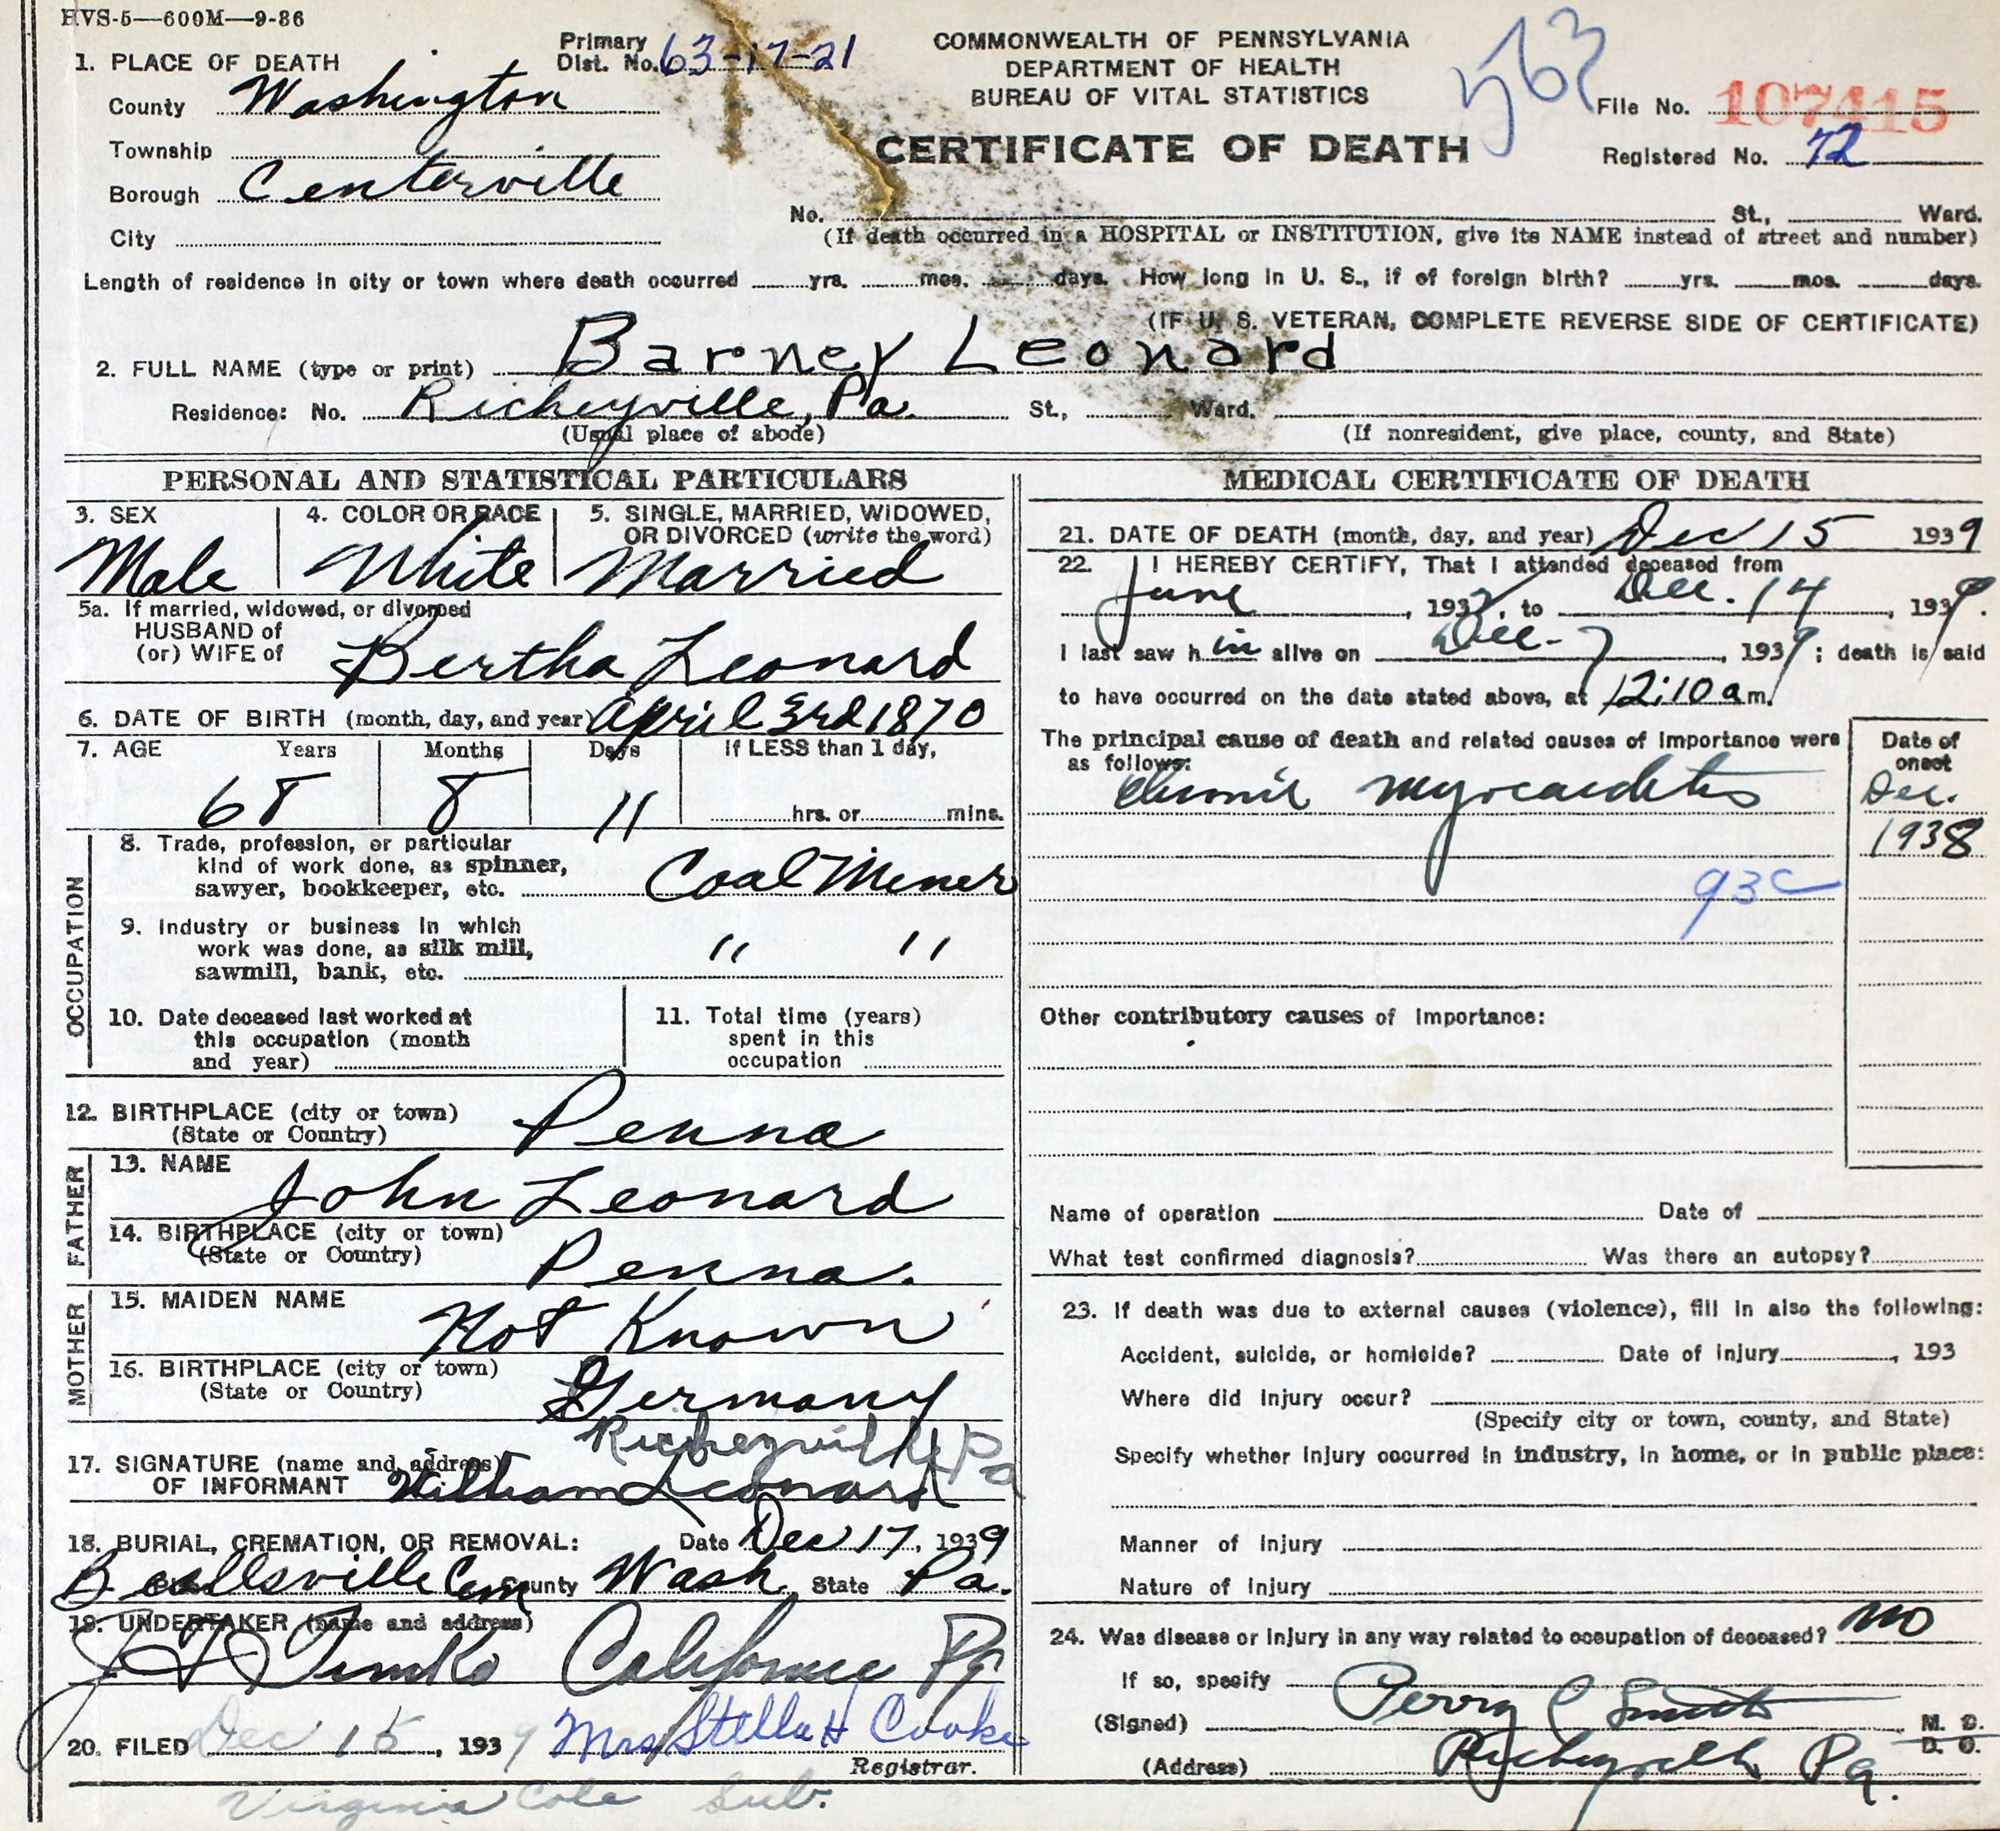 HVS-5—600M—9-36
1. PLACE OF DEATH
Primary Dist. No. 63-17-21
COMMONWEALTH OF PENNSYLVANIA
DEPARTMENT OF HEALTH
BUREAU OF VITAL STATISTICS
CERTIFICATE OF DEATH
563
File No. 107415
Registered No. 72
County Washington
Township
Borough Centerville
City
No. St., Ward.
(If death occurred in a HOSPITAL or INSTITUTION, give its NAME instead of street and number)
Length of residence in city or town where death occurred yrs. mos. days. How long in U. S., if of foreign birth? yrs. mos. days.
(IF U. S. VETERAN, COMPLETE REVERSE SIDE OF CERTIFICATE)
2. FULL NAME (type or print) Barney Leonard
Residence: No. Richeyville, Pa. St., Ward.
(Usual place of abode) (If nonresident, give place, county, and State)
PERSONAL AND STATISTICAL PARTICULARS
3. SEX
Male
4. COLOR OR RACE
White
5. SINGLE, MARRIED, WIDOWED, OR DIVORCED (write the word)
Married
5a. If married, widowed, or divorced
HUSBAND of
(or) WIFE of Bertha Leonard
6. DATE OF BIRTH (month, day, and year) April 3rd 1870
7. AGE Years Months Days If LESS than 1 day,
68 8 11 hrs. or mins.
OCCUPATION
8. Trade, profession, or particular
kind of work done, as spinner,
sawyer, bookkeeper, etc. Coal Miner
9. Industry or business in which
work was done, as silk mill,
sawmill, bank, etc. " "
10. Date deceased last worked at
this occupation (month
and year)
11. Total time (years)
spent in this
occupation
12. BIRTHPLACE (city or town)
(State or Country) Penna
FATHER
13. NAME
John Leonard
14. BIRTHPLACE (city or town)
(State or Country) Penna.
MOTHER
15. MAIDEN NAME
Not Known
16. BIRTHPLACE (city or town)
(State or Country) Germany
Richeyville Pa
17. SIGNATURE (name and address)
OF INFORMANT William Leonard
18. BURIAL, CREMATION, OR REMOVAL: Date Dec 17, 1939
Beallsville Cem County Wash. State Pa.
19. UNDERTAKER (name and address)
California Pa
20. FILED Dec 15, 1939 Mrs Stella H Cooke
Registrar.
Virginia Cole Sub.
MEDICAL CERTIFICATE OF DEATH
21. DATE OF DEATH (month, day, and year) Dec 15 1939
22. I HEREBY CERTIFY, That I attended deceased from
June, 193 , to Dec. 14, 1939.
I last saw him alive on Dec-7, 1939; death is said
to have occurred on the date stated above, at 12:10 a m.
The principal cause of death and related causes of importance were
as follows:
Date of onset
Chronic myocarditis Dec.
1938
93c
Other contributory causes of importance:
Name of operation Date of
What test confirmed diagnosis? Was there an autopsy?
23. If death was due to external causes (violence), fill in also the following:
Accident, suicide, or homicide? Date of injury , 193
Where did injury occur?
(Specify city or town, county, and State)
Specify whether injury occurred in industry, in home, or in public place:
Manner of injury
Nature of injury
24. Was disease or injury in any way related to occupation of deceased? no
If so, specify
(Signed) Perry C Smith, M. D.
D. O.
(Address) Richeyville Pa.